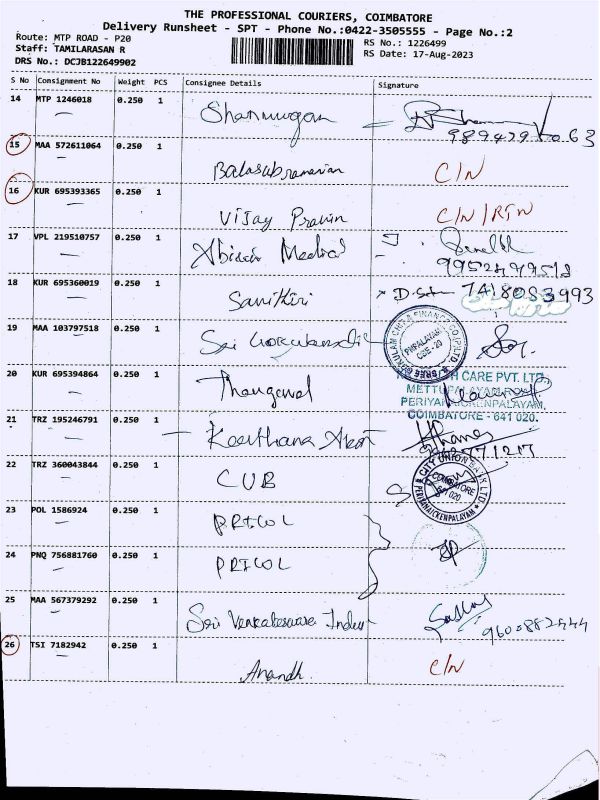 THE PROFESSIONAL COURIERS, COIMBATORE
Delivery Runsheet - SPT - Phone No.:0422-3505555 - Page No.:2
Route: MTP ROAD - P20
RS No.: 1226499
Staff: TAMILARASAN R
RS Date: 17-Aug-2023
DRS No.: DCJB122649902
S No Consignment No Weight PCS Consignee Details Signature
14 MTP 1246018 0.250 1
Shanmugam
15 MAA 572611064 0.250 1
Balasubramanian C/N
16 KUR 695393365 0.250 1
Vijay Pravin C/N/RTN
17 VPL 219510757 0.250 1
Medical
18 KUR 695360019 0.250 1
7418083993
19 MAA 103797518 0.250 1
Sri
20 KUR 695394864 0.250 1
Thangavel
CARE PVT. LTD.
METTUPALAYAM
PERIYANAICKENPALAYAM,
COIMBATORE - 641 020.
21 TRZ 195246791 0.250 1
Keerthana
22 TRZ 360043844 0.250 1
CUB
CITY UNION BANK LTD.
COIMBATORE
PERIYANAICKENPALAYAM
23 POL 1586924 0.250 1
PRICOL
24 PNQ 756881760 0.250 1
PRICOL
25 MAA 567379292 0.250 1
Sri Venkateswara
9600882444
26 TSI 7182942 0.250 1
Anandh C/N